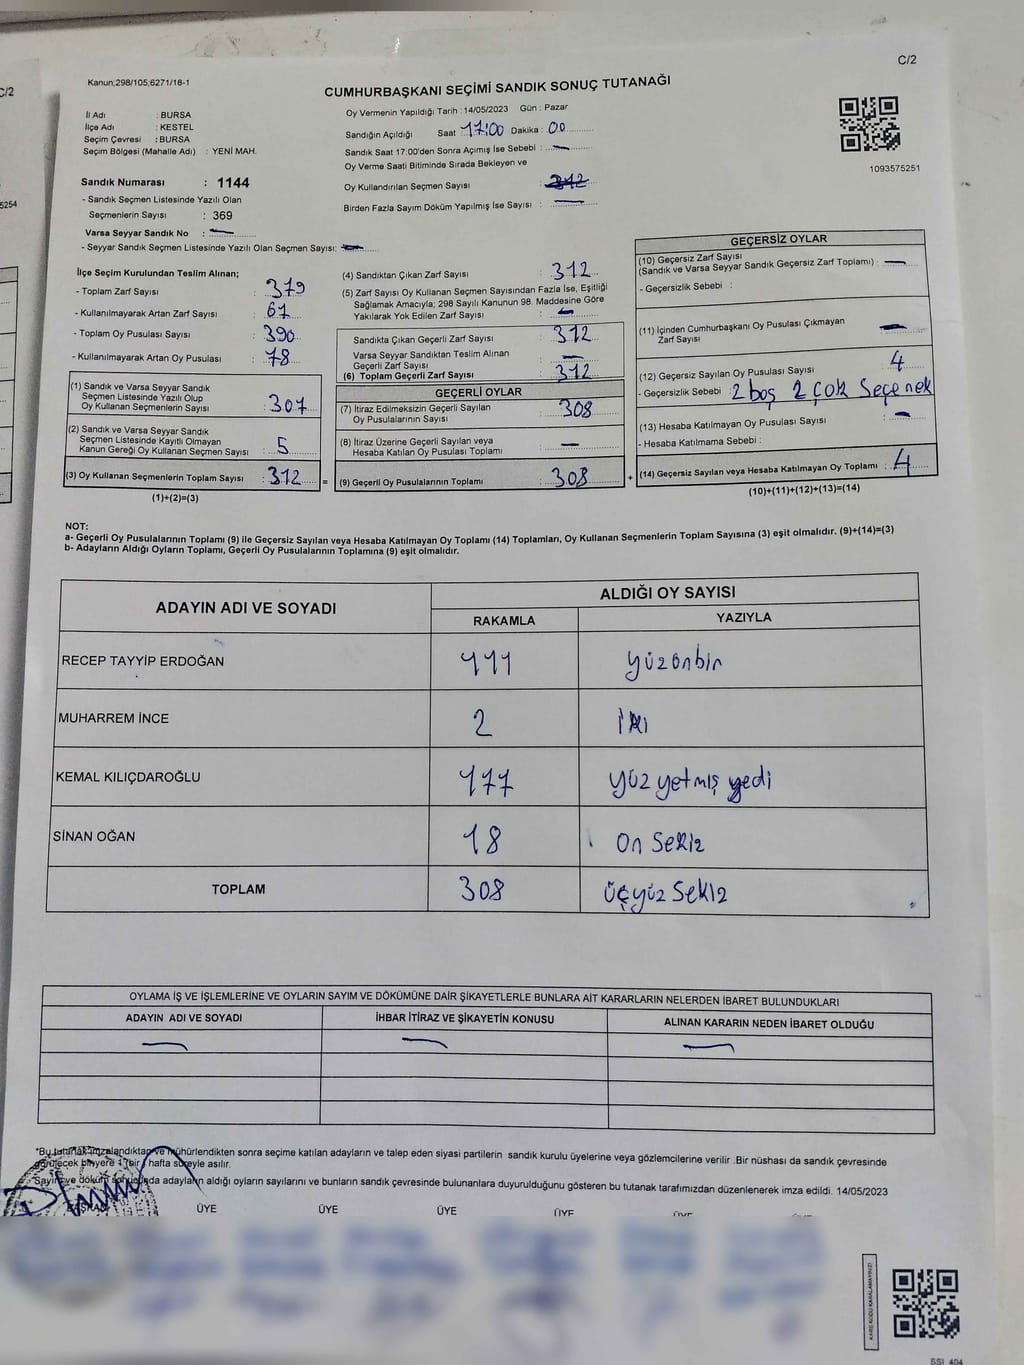 C/2
C/2
Kanun;298/105;6271/18-1
CUMHURBAŞKANI SEÇİMİ SANDIK SONUÇ TUTANAĞI
İl Adı : BURSA
İlçe Adı : KESTEL
Seçim Çevresi : BURSA
Seçim Bölgesi (Mahalle Adı) : YENİ MAH.
Sandık Numarası : 1144
- Sandık Seçmen Listesinde Yazılı Olan
Seçmenlerin Sayısı : 369
Varsa Seyyar Sandık No : —
- Seyyar Sandık Seçmen Listesinde Yazılı Olan Seçmen Sayısı: —
Oy Vermenin Yapıldığı Tarih : 14/05/2023 Gün : Pazar
Sandığın Açıldığı Saat 17:00 Dakika : 00
Sandık Saat 17:00'den Sonra Açımış İse Sebebi : —
Oy Verme Saati Bitiminde Sırada Bekleyen ve
Oy Kullandırılan Seçmen Sayısı 312
Birden Fazla Sayım Döküm Yapılmış İse Sayısı : —
1093575251
5254
İlçe Seçim Kurulundan Teslim Alınan;
- Toplam Zarf Sayısı : 379
- Kullanılmayarak Artan Zarf Sayısı : 67
- Toplam Oy Pusulası Sayısı : 390
- Kullanılmayarak Artan Oy Pusulası : 78
(1) Sandık ve Varsa Seyyar Sandık
Seçmen Listesinde Yazılı Olup
Oy Kullanan Seçmenlerin Sayısı : 307
(2) Sandık ve Varsa Seyyar Sandık
Seçmen Listesinde Kayıtlı Olmayan
Kanun Gereği Oy Kullanan Seçmen Sayısı : 5
(3) Oy Kullanan Seçmenlerin Toplam Sayısı : 312 =
(1)+(2)=(3)
(4) Sandıktan Çıkan Zarf Sayısı : 312
(5) Zarf Sayısı Oy Kullanan Seçmen Sayısından Fazla İse, Eşitliği
Sağlamak Amacıyla; 298 Sayılı Kanunun 98. Maddesine Göre
Yakılarak Yok Edilen Zarf Sayısı : —
Sandıkta Çıkan Geçerli Zarf Sayısı : 312
Varsa Seyyar Sandıktan Teslim Alınan
Geçerli Zarf Sayısı : —
(6) Toplam Geçerli Zarf Sayısı : 312
GEÇERLİ OYLAR
(7) İtiraz Edilmeksizin Geçerli Sayılan
Oy Pusulalarının Sayısı : 308
(8) İtiraz Üzerine Geçerli Sayılan veya
Hesaba Katılan Oy Pusulası Toplamı : —
(9) Geçerli Oy Pusulalarının Toplamı : 308 +
GEÇERSİZ OYLAR
(10) Geçersiz Zarf Sayısı
(Sandık ve Varsa Seyyar Sandık Geçersiz Zarf Toplamı) : —
- Geçersizlik Sebebi :
(11) İçinden Cumhurbaşkanı Oy Pusulası Çıkmayan
Zarf Sayısı : —
(12) Geçersiz Sayılan Oy Pusulası Sayısı : 4
- Geçersizlik Sebebi : 2 boş 2 çok Seçenek
(13) Hesaba Katılmayan Oy Pusulası Sayısı : —
- Hesaba Katılmama Sebebi :
(14) Geçersiz Sayılan veya Hesaba Katılmayan Oy Toplamı : 4
(10)+(11)+(12)+(13)=(14)
NOT:
a- Geçerli Oy Pusulalarının Toplamı (9) ile Geçersiz Sayılan veya Hesaba Katılmayan Oy Toplamı (14) Toplamları, Oy Kullanan Seçmenlerin Toplam Sayısına (3) eşit olmalıdır. (9)+(14)=(3)
b- Adayların Aldığı Oyların Toplamı, Geçerli Oy Pusulalarının Toplamına (9) eşit olmalıdır.
ADAYIN ADI VE SOYADI ALDIĞI OY SAYISI
RAKAMLA YAZIYLA
RECEP TAYYİP ERDOĞAN 111 yüzonbir
MUHARREM İNCE 2 iki
KEMAL KILIÇDAROĞLU 177 yüz yetmiş yedi
SİNAN OĞAN 18 on sekiz
TOPLAM 308 üçyüz sekiz
OYLAMA İŞ VE İŞLEMLERİNE VE OYLARIN SAYIM VE DÖKÜMÜNE DAİR ŞİKAYETLERLE BUNLARA AİT KARARLARIN NELERDEN İBARET BULUNDUKLARI
ADAYIN ADI VE SOYADI İHBAR İTİRAZ VE ŞİKAYETİN KONUSU ALINAN KARARIN NEDEN İBARET OLDUĞU
— — —
"Bu tutanak imzalandıktan ve mühürlendikten sonra seçime katılan adayların ve talep eden siyasi partilerin sandık kurulu üyelerine veya gözlemcilerine verilir .Bir nüshası da sandık çevresinde
görülecek bir yere 1 (bir) hafta süreyle asılır.
Sayım ve döküm sonucunda adayların aldığı oyların sayılarını ve bunların sandık çevresinde bulunanlara duyurulduğunu gösteren bu tutanak tarafımızdan düzenlenerek imza edildi. 14/05/2023
BAŞKAN ÜYE ÜYE ÜYE ÜYE ÜYE
KARE KODU KARALAMAYINIZ!
SSI_404